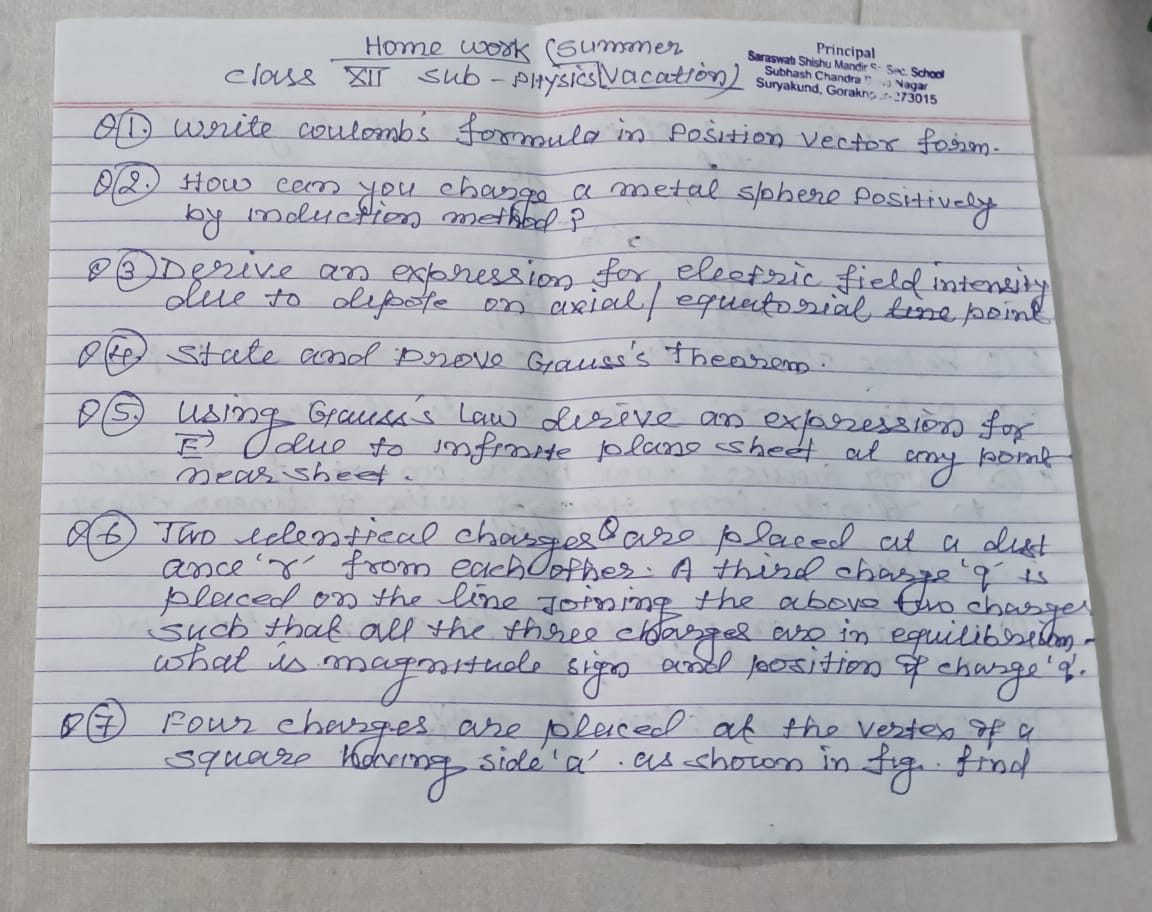 Home work (Summer
class XII sub - PHysics Vacation)
Principal
Saraswati Shishu Mandir Sec. School
Subhash Chandra Nagar
Suryakund, 273015
Q1. Write coulomb's formula in Position vector form.
Q2. How can you charge a metal sphere Positively
by induction method?
Q3 Derive an expression for electric field intensity
due to dipole on axial/equatorial line point
Q4. State and prove Gauss's Thearem.
Q5. Using Gauss's Law derive an expression for
E due to infinite plane sheet at any point
near sheet.
Q6 Two identical charges Q are placed at a dist
ance 'r' from each other. A third charge 'q' is
placed on the line Joining the above two charges
such that all the three charges are in equilibrium.
what is magnitude sign and position of charge 'q'.
Q7 Four charges are placed at the vertex of a
square Having side 'a'. as shown in fig. find